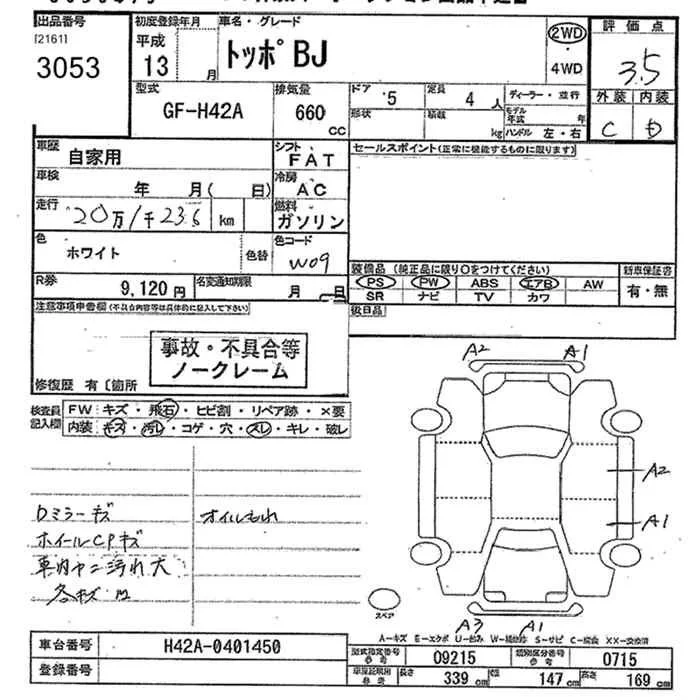 出品番号 初度登録年月 車名・グレード 評価点
[2161] 平成 トッポBJ 2WD 3.5
3053 13 月 4WD
型式 排気量 ドア 定員 ディーラー・並行 外装 内装
GF-H42A 660 5 4人 モデル年式 年 C D
cc 形状 積載 kg ハンドル 左・右
車歴 自家用 シフト FAT セールスポイント(正常に機能するものに限ります)
車検 年 月( 日) 冷房 AC
走行 20万/千236 km 燃料 ガソリン
色 ホワイト 色替 色コード W09
装備品 (純正品に限り○をつけてください) 新車保証書
R券 9,120円 名変通知期限 月 日 PS PW ABS エアB AW 有・無
SR ナビ TV カワ
注意事項申告欄(不具合内容等は具体的に記入して下さい) 後日品
事故・不具合等
ノークレーム
修復歴 有〔箇所
A2 A1
検査員記入欄 FW キズ・飛石・ヒビ割・リペア跡・×要
内装 キズ・汚れ・コゲ・穴・スレ・キレ・破レ
A2
Dミラーキズ オイルもれ A1
ホイールCPキズ
車内ヤニ汚れ大
各キズ凹
スペア
A3 A1
A-キズ E-エクボ U-凹み W-補修跡 S-サビ C-腐食 XX-交換済
車台番号 H42A-0401450 型式指定番号 参考 09215 類別区分番号 参考 0715
登録番号 車庫証明用 参考 長さ 339cm 幅 147cm 高さ 169cm